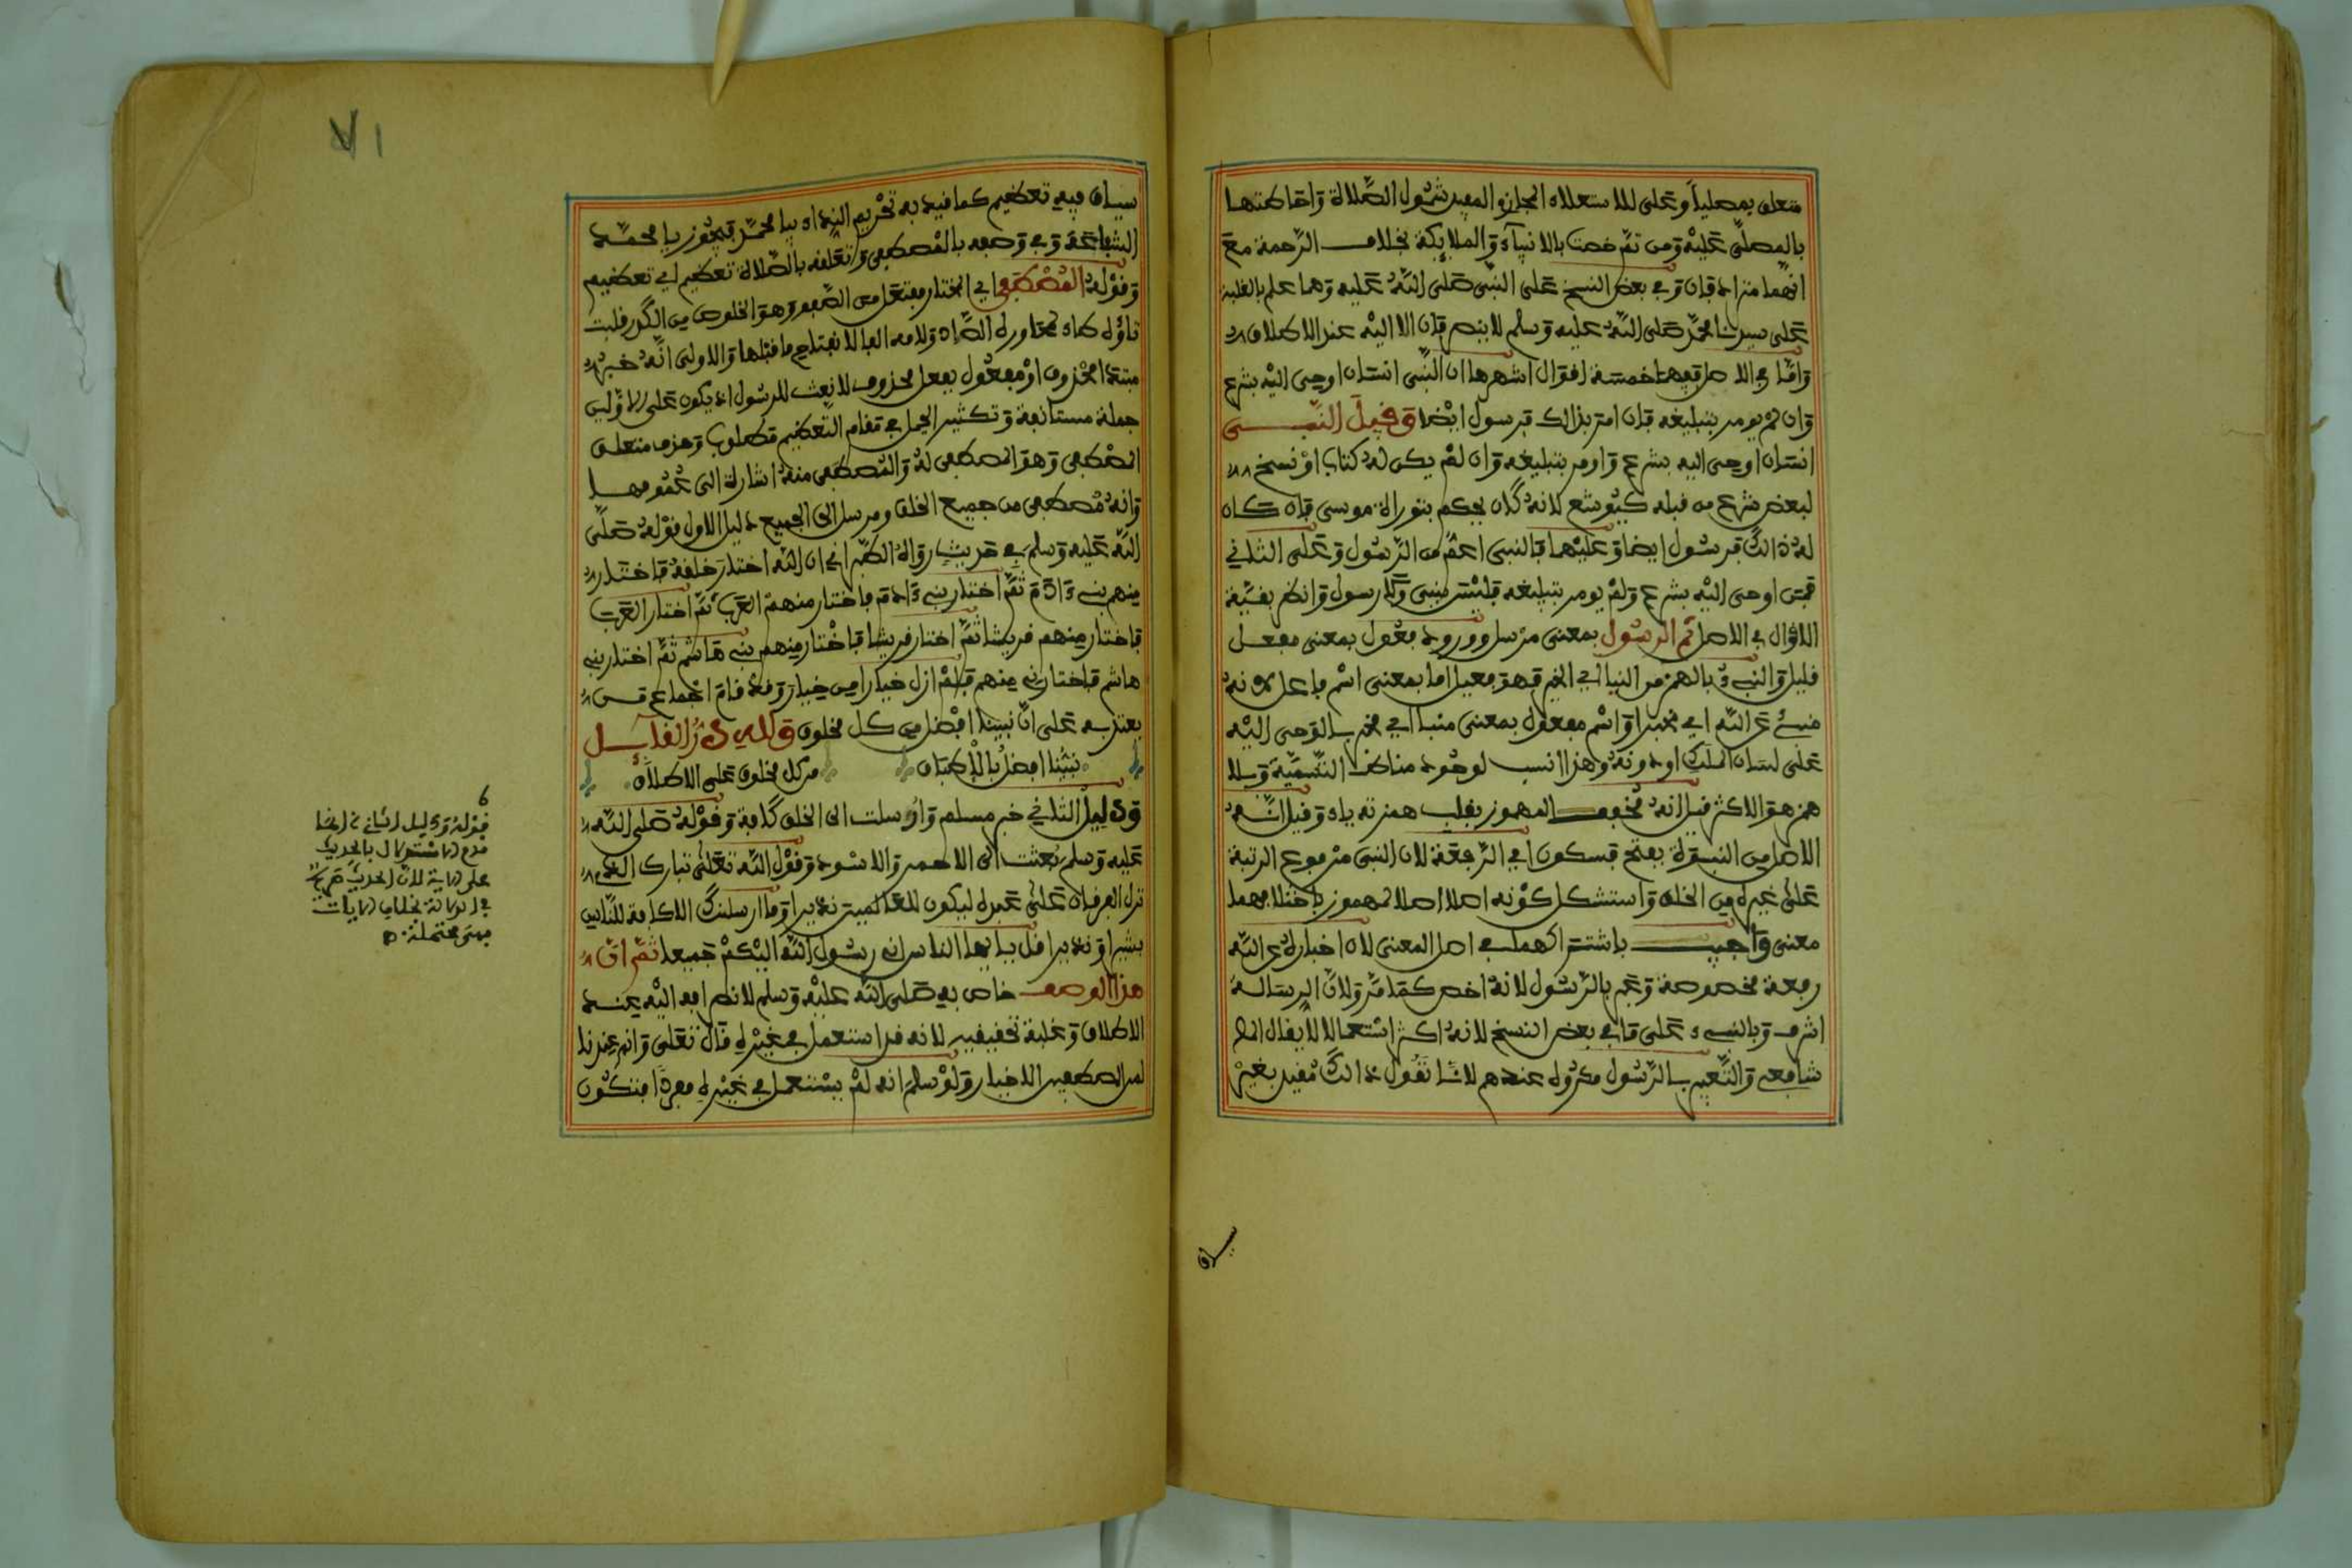 متعلق بمصليا وعلى للاستعلاء المجازي المفيد شمول الصلاة واحاطتها
بالمصلى عليه ومن ثم خصت بالانبياء والملايكة بخلاف الرحمة مع
انهما متراد فان وفي بعض النسخ على النبي صلى الله عليه وهما علم بالغلبة
على سيدنا محمد صلى الله عليه وسلم لا ينصرفان الا اليه عند الاطلاق
واما في الاصل ففيهما خمسة اقوال اشهرها ان النبي انسان اوحى اليه بشرع
وان لم يومر بتبليغه فان امر بذالك فرسول ايضا وقيل النبي
انسان اوحى اليه بشرع وأومر بتبليغه وان لم يكن له كتاب او نسخ
لبعض شرع من قبله كيوشع لانه كان يحكم بتوراة موسى فان كان
له ذالك فرسول ايضا وعليهما فالنبي اعم من الرسول وعلى الثاني
فمن اوحى اليه بشرع ولم يومر بتبليغه فليس بنبي ولا رسول وانظر بقية
الاقوال في الاصل ثم الرسول بمعنى مرسل وورود فعول بمعنى مفعل
قليل والنبيء بالهمز من النبا اي الخبر فهو فعيل اما بمعنى اسم فاعل لانه
منبئ عن الله اي مخبر او اسم مفعول بمعنى منبا اي مخبر بالوحي اليه
على لسان الملك او دونه وهذا انسب لوجود مناط التسمية وبلا
همز هو الاكثر فيل انه مخفف المهموز بقلب همزته ياء وقيل انه
الاصل من النبوة بفتح فسكون اي الرفعة لان النبي مرفوع الرتبة
على غيره من الخلق واستشكل كونه اصلا اصلا لمهموز باختلافهما
معنى واجيب باشتراكهما في اصل المعنى لان اخباره عن الله
رفعة مخصوصة وعبر بالرسول لانه اخص كما مر ولان الرسالة
اشرف وبالنبيء على ما في بعض النسخ لانه اكثر استعمالا لا يقال انه
شافعي والتعبير بالرسول مكروه عندهم لانا نقول ذالك مقيد بغير
سياق
٧١
سياق فيه تعظيم كما قيد به تحريم النداء بيا محمد فيجوز يا محمد
الشفاعة وفي وصفه بالمصطفى وتعلقه بالصلاة تعظيم اي تعظيم
وقوله المصطفى اي المختار مفتعل من الصفو وهو الخلوص من الكدر قلبت
تاؤه طاء لمجاورة الصاد ولامه الفا لانفتاح ما قبلها والاولى انه خبر
مبتدا محذوف او مفعول بفعل محذوف لا نعت للرسول اذ يكون على الاولين
جملة مستانفة وتكثير الجمل في مقام التعظيم مطلوب وحذف متعلق
المصطفى وهو المصطفى له والمصطفى منه اشارة الى عمومهما
وانه مصطفى من جميع الخلق ومرسل الى الجميع دليل الاول قوله صلى
الله عليه وسلم في حديث رواه الطبراني ان الله اختار خلقه فاختار
منهم بني ءادم ثم اختار بني ءادم فاختار منهم العرب ثم اختار العرب
فاختار منهم قريشا ثم اختار قريشا فاختار منهم بني هاشم ثم اختار بني
هاشم فاختارني منهم فلم ازل خيارا من خيار وقد قام اجماع من
يعتد به على ان نبينا افضل من كل مخلوق ولله در القايل
نبينا افضل بالاطباق من كل مخلوق على الاطلاق
ودليل الثاني خبر مسلم وارسلت الى الخلق كافة وقوله صلى الله
عليه وسلم بعثت الى الاحمر والاسود وقول الله تعلى تبارك الذي
نزل الفرقان على عبده ليكون للعالمين نذيرا وما ارسلنك الا كافة للناس
بشيرا ونذيرا قل يايها الناس اني رسول الله اليكم جميعا ثم ان
هذا الوصف خاص به صلى الله عليه وسلم لانصرافه اليه عند
الاطلاق وغلبة تخفيفيه لانه قد استعمل في غيره قال تعلى وانهم عندنا
لمن المصطفين الاخيار ولو سلم انه لم يستعمل في غيره مفردا فتكون
قوله ودليل الثاني الخ انما
قدم الاستدلال بالحديث
على الاية لان الحديث صريح
في الدلالة بخلاف الايات
فهي محتملة